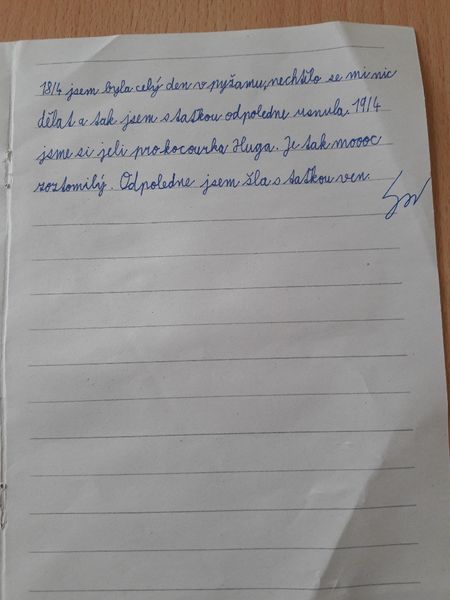 18/4 jsem byla celý den v pyžamu, nechtělo se mi nic
dělat a tak jsem s taťkou odpoledne usnula. 19/4
jsme si jeli pro kocourka Huga. Je tak moooc
roztomilý. Odpoledne jsem šla s taťkou ven.